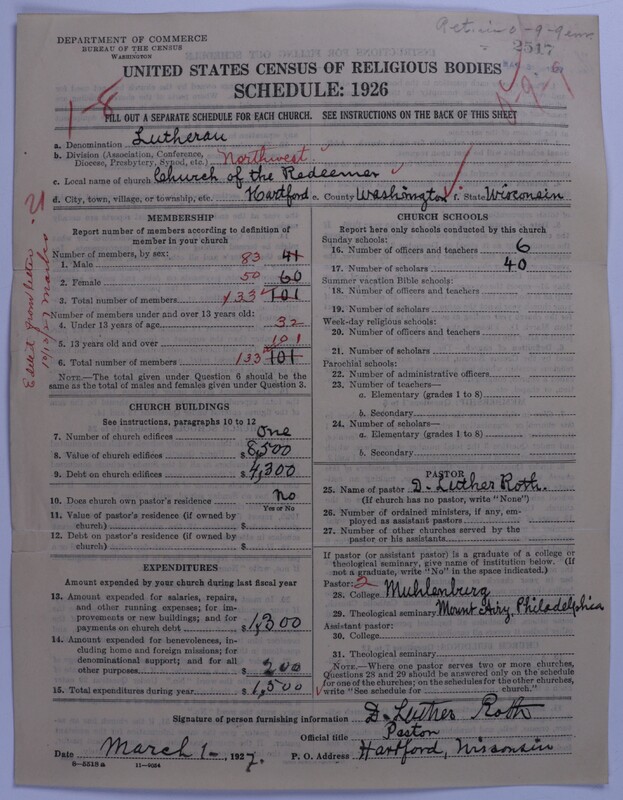 DEPARTMENT OF COMMERCE
BUREAU OF THE CENSUS
WASHINGTON
2517
UNITED STATES CENSUS OF RELIGIOUS BODIES
SCHEDULE: 1926
1-8
FILL OUT A SEPARATE SCHEDULE FOR EACH CHURCH. SEE INSTRUCTIONS ON THE BACK OF THIS SHEET
a. Denomination Lutheran
b. Division (Association, Conference, Diocese, Presbytery, Synod, etc.) Northwest.
c. Local name of church Church of the Redeemer
d. City, town, village, or township, etc. Hartford e. County Washington f. State Wisconsin
MEMBERSHIP
Report number of members according to definition of
member in your church
Number of members, by sex:
1. Male 83 41
2. Female 50 60
3. Total number of members 133 101
Number of members under and over 13 years old:
4. Under 13 years of age 32
5. 13 years old and over 101
6. Total number of members 133 101
NOTE.—The total given under Question 6 should be the
same as the total of males and females given under Question 3.
CHURCH BUILDINGS
See instructions, paragraphs 10 to 12
7. Number of church edifices One
8. Value of church edifices $ 8,500
9. Debt on church edifices $ 4,300
10. Does church own pastor's residence No
Yes or No
11. Value of pastor's residence (if owned by
church) $
12. Debt on pastor's residence (if owned by
church) $
EXPENDITURES
Amount expended by your church during last fiscal year
13. Amount expended for salaries, repairs,
and other running expenses; for im-
provements or new buildings; and for
payments on church debt $ 1,300
14. Amount expended for benevolences, in-
cluding home and foreign missions; for
denominational support; and for all
other purposes $ 200
15. Total expenditures during year $ 1,500
CHURCH SCHOOLS
Report here only schools conducted by this church
Sunday schools:
16. Number of officers and teachers 6
17. Number of scholars 40
Summer vacation Bible schools:
18. Number of officers and teachers
19. Number of scholars
Week-day religious schools:
20. Number of officers and teachers
21. Number of scholars
Parochial schools:
22. Number of administrative officers
23. Number of teachers—
a. Elementary (grades 1 to 8)
b. Secondary
24. Number of scholars—
a. Elementary (grades 1 to 8)
b. Secondary
PASTOR
25. Name of pastor D. Luther Roth.
(If church has no pastor, write "None")
26. Number of ordained ministers, if any, em-
ployed as assistant pastors
27. Number of other churches served by the
pastor or his assistants
If pastor (or assistant pastor) is a graduate of a college or
theological seminary, give name of institution below. (If
not a graduate, write "No" in the space indicated.)
Pastor: 2
28. College Muhlenburg
29. Theological seminary Mount Airy, Philadelphia
Assistant pastor:
30. College
31. Theological seminary
NOTE.—Where one pastor serves two or more churches,
Questions 28 and 29 should be answered only on the schedule
for one of the churches; on the schedules for the other churches,
write "See schedule for church."
Signature of person furnishing information D. Luther Roth
Official title Pastor
Date March 1- , 1927. P. O. Address Hartford, Wisconsin
8-5518a 11-4024